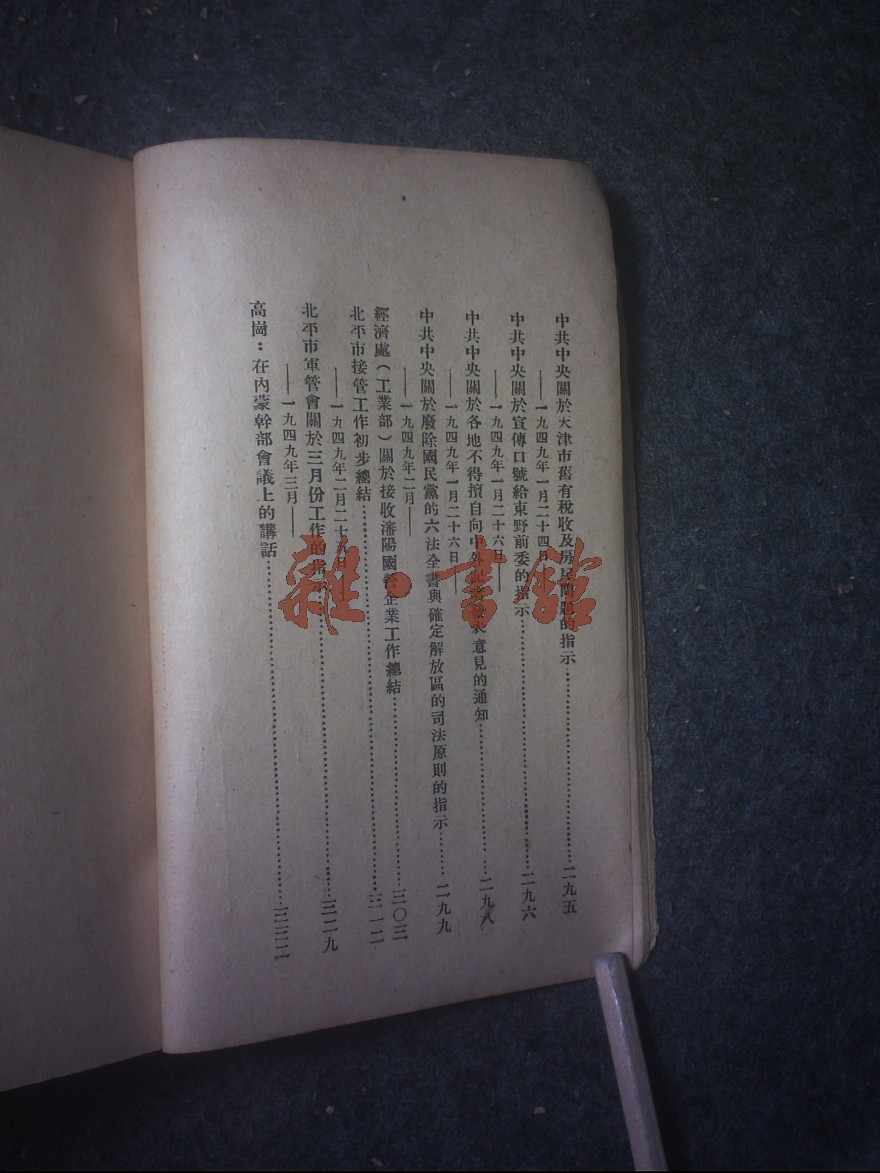 中共中央關於天津市舊有稅收及房屋問題的指示……二九五
——一九四九年一月二十四日——
中共中央關於宣傳口號給東野前委的指示……二九六
——一九四九年一月二十六日——
中共中央關於各地不得擅自向中外記者發表意見的通知……二九八
——一九四九年一月二十六日——
中共中央關於廢除國民黨的六法全書與確定解放區的司法原則的指示……二九九
——一九四九年二月——
經濟處（工業部）關於接收瀋陽國營企業工作總結……三〇三
北平市接管工作初步總結……三一二
——一九四九年二月二十五日——
北平市軍管會關於三月份工作的指示……三二九
——一九四九年三月——
高崗：在內蒙幹部會議上的講話……三三二
雜·書館